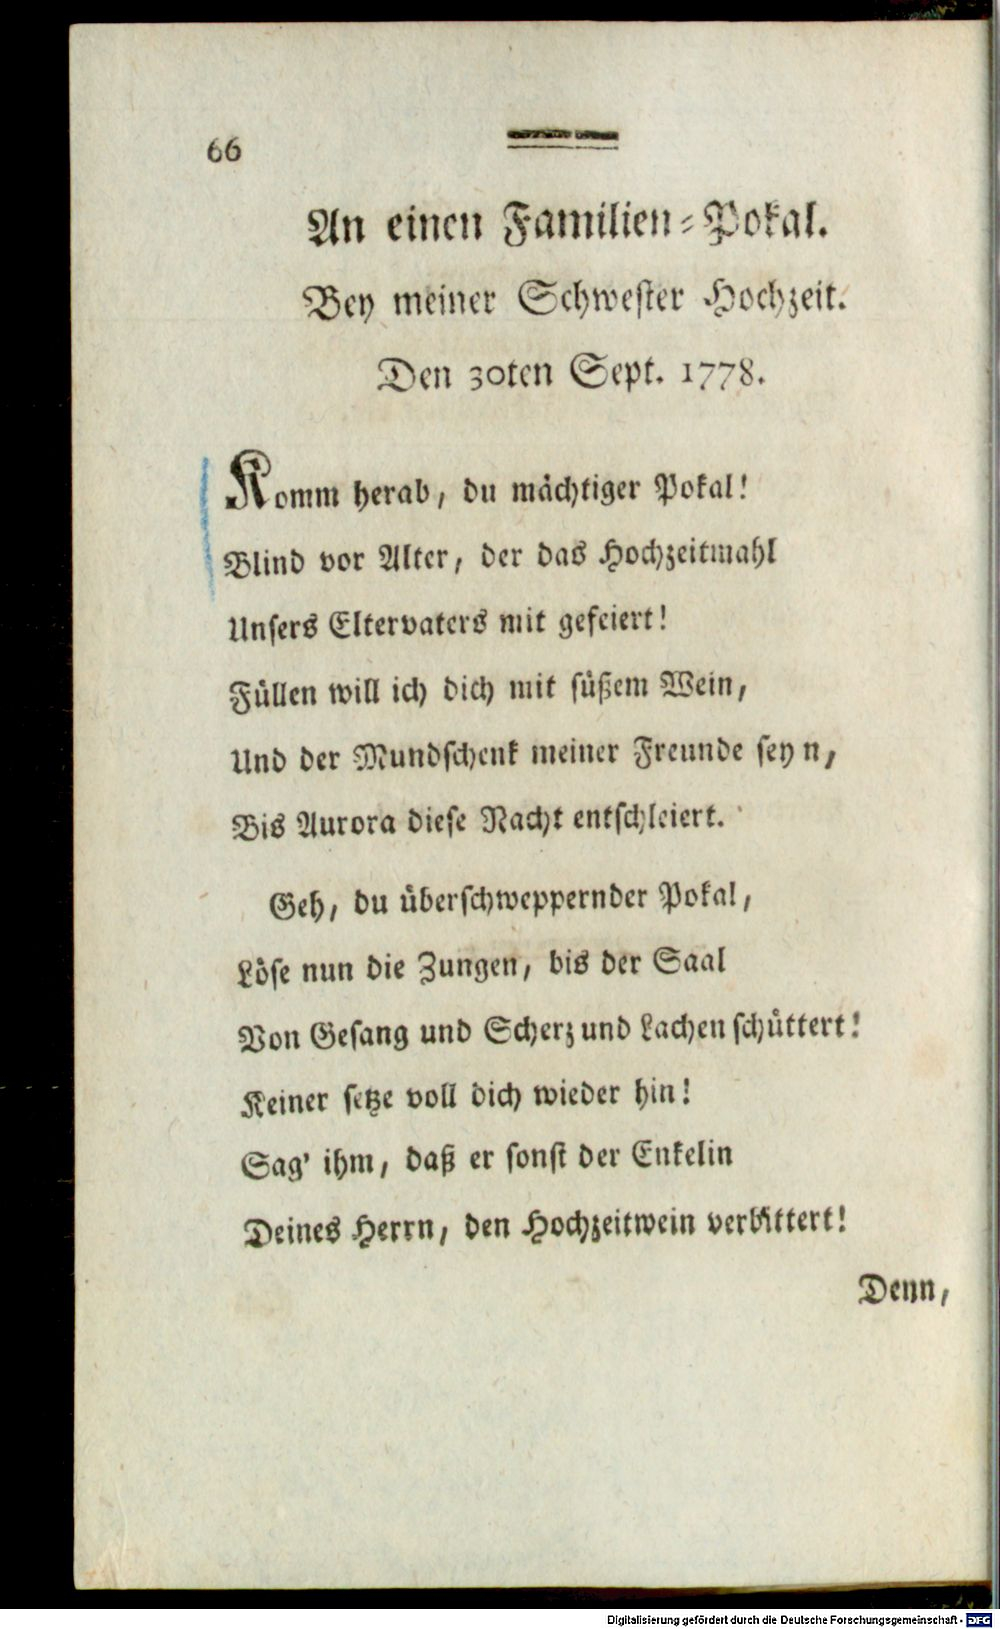 66
An einen Familien-Pokal.
Bey meiner Schwester Hochzeit.
Den 30ten Sept. 1778.
Komm herab, du mächtiger Pokal!
Blind vor Alter, der das Hochzeitmahl
Unsers Eltervaters mit gefeiert!
Füllen will ich dich mit süßem Wein,
Und der Mundschenk meiner Freunde seyn,
Bis Aurora diese Nacht entschleiert.
Geh, du überschweppernder Pokal,
Löse nun die Zungen, bis der Saal
Von Gesang und Scherz und Lachen schüttert!
Keiner setze voll dich wieder hin!
Sag' ihm, daß er sonst der Enkelin
Deines Herrn, den Hochzeitwein verbittert!
Denn,
Digitalisierung gefördert durch die Deutsche Forschungsgemeinschaft - DFG